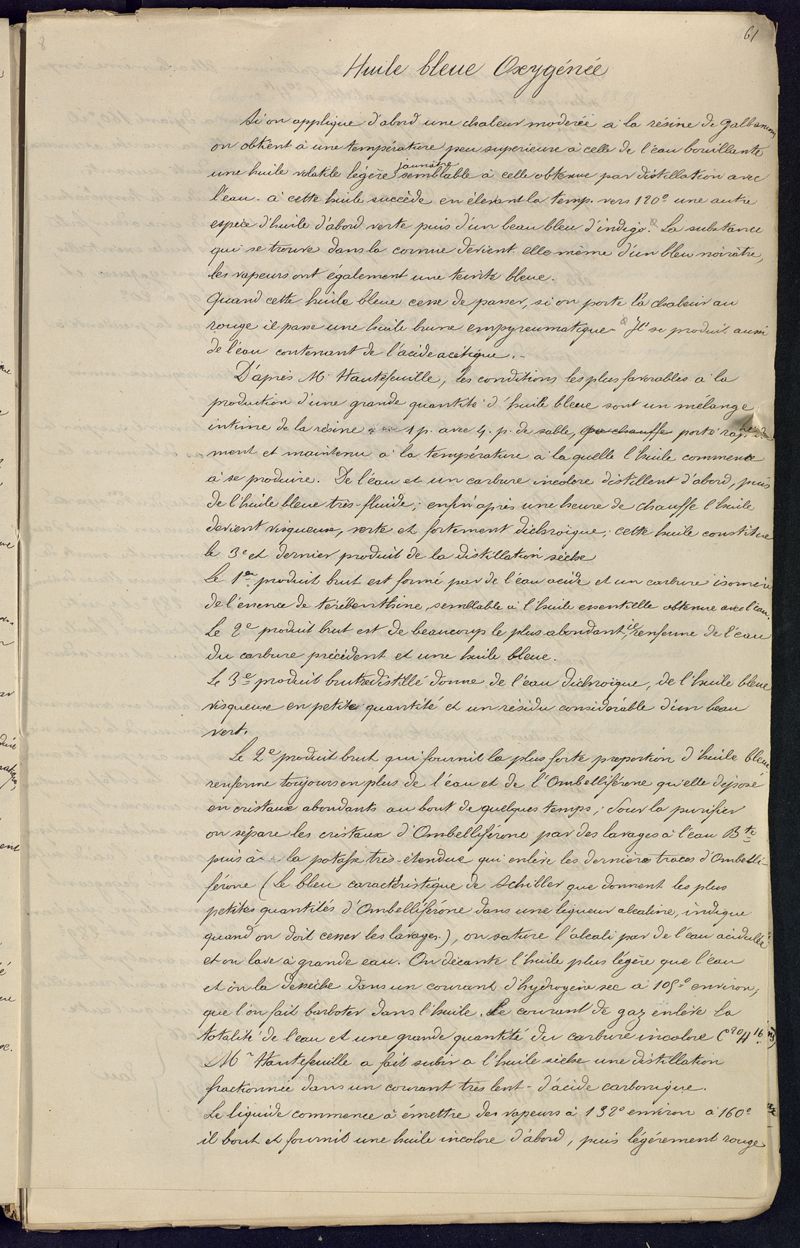 61
Huile bleue Oxygénée
Si on applique d'abord une chaleur modérée a la résine de Galbanum
on obtient à une température peu superieure à celle de l'eau bouillante
une huile volatile légère jaunâtre semblable à celle obtenue par distillation avec
l'eau. à cette huile succède en élevant la temp. vers 120° une autre
espèce d'huile d'abord verte puis d'un beau bleu d'indigo. La substance
qui se trouve dans la cornue devient elle même d'un bleu noirâtre,
les vapeurs ont également une teinte bleue.
Quand cette huile bleue cesse de passer, si on porte la chaleur au
rouge il passe une huile brune empyreumatique. Il se produit aussi
de l'eau contenant de l'acide acétique. –
D'après Mr Hautefeuille, les conditions les plus favorables à la
production d'une grande quantité d'huile bleue sont un mélange
intime de la résine 1 p. avec 4. p. de sable, que chauffer porté
ment et maintenu à la température à laquelle l'huile commence
à se produire. De l'eau et un carbure incolore distillent d'abord, puis
de l'huile bleue très-fluide; enfin après une heure de chauffe l'huile
devient visqueuse, verte et fortement dichroïque; cette huile constitue
le 3e et dernier produit de la distillation sèche
Le 1er produit brut est formé par de l'eau acide et un carbure isomère
de l'essence de térébenthine, semblable à l'huile essentielle obtenue avec l'eau.
Le 2e produit brut est de beaucoup le plus abondant, il renferme de l'eau
du carbure précédent et une huile bleue.
Le 3e produit brut redistillé donne de l'eau dichroïque, de l'huile bleue
visqueuse en petite quantité et un résidu considérable d'un beau
vert.
Le 2e produit brut qui fournit la plus forte proportion d'huile bleue
renferme toujours en plus de l'eau et de l'Ombelliférone qu'elle dépose
en cristaux abondants au bout de quelques temps; Pour la purifier
on sépare les cristaux d'Ombelliférone par des lavages à l'eau Bte
puis à la potasse très-étendue qui enlève les dernières traces d'Ombelli-
férone (Le bleu caractéristique de Schiller que donnent les plus
petites quantités d'Ombelliférone dans une liqueur alcaline, indique
quand on doit cesser les lavages.), on sature l'alcali par de l'eau acidulée
et on lave à grande eau. On décante l'huile plus légère que l'eau
et on la dessèche dans un courant d'hydrogène sec à 105° environ,
que l'on fait barboter dans l'huile. Le courant de gaz enlève la
totalité de l'eau et une grande quantité du carbure incolore C20H16.
Mr Hautefeuille a fait subir a l'huile sèche une distillation
fractionnée dans un courant très lent d'acide carbonique.
Le liquide commence à émettre des vapeurs à 132° environ à 160°
il bout et fournit une huile incolore d'abord, puis légérement rouge